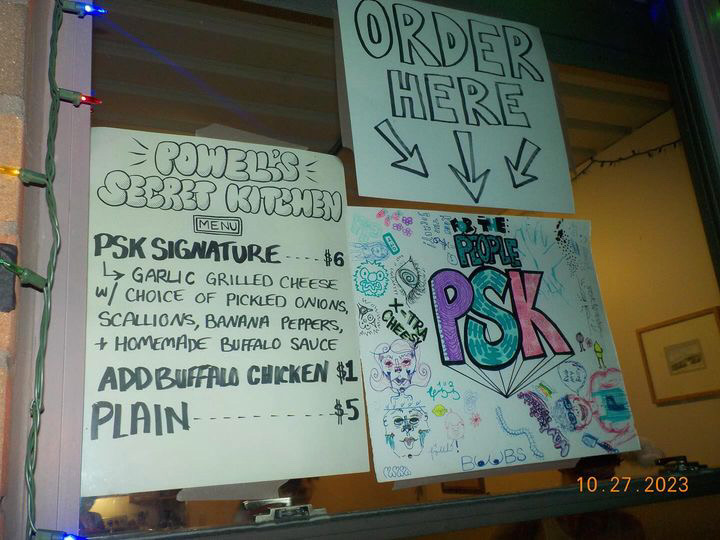 ORDER
HERE
POWELL'S
SECRET KITCHEN
MENU
PSK SIGNATURE ----- $6
↳ GARLIC GRILLED CHEESE
W/ CHOICE OF PICKLED ONIONS,
SCALLIONS, BANANA PEPPERS,
+ HOMEMADE BUFFALO SAUCE
ADD BUFFALO CHICKEN $1
PLAIN ------------- $5
FOR THE
PEOPLE
PSK
X-TRA
CHEESY
BOOBS
10.27.2023